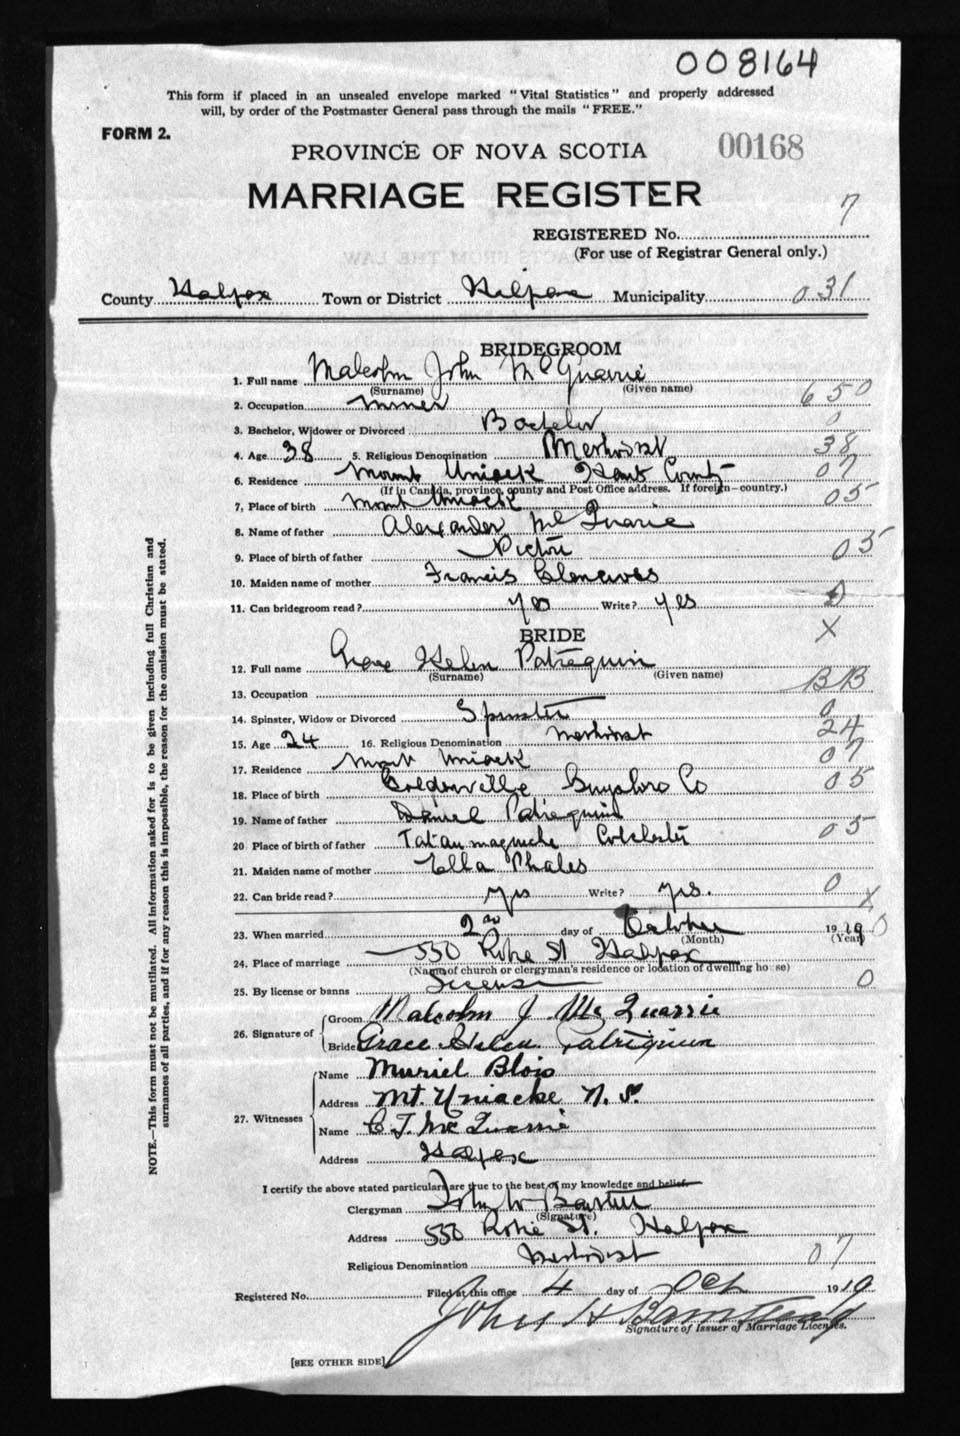 008164
This form if placed in an unsealed envelope marked "Vital Statistics" and properly addressed
will, by order of the Postmaster General pass through the mails "FREE."
FORM 2.
PROVINCE OF NOVA SCOTIA 00168
MARRIAGE REGISTER
7
REGISTERED No.
(For use of Registrar General only.)
County Halifax Town or District Halifax Municipality 031
BRIDEGROOM
1. Full name Malcolm John McQuarrie
(Surname) (Given name)
2. Occupation miner 650
3. Bachelor, Widower or Divorced Bachelor 0
4. Age 38 5. Religious Denomination Methodist 38
6. Residence Mount Uniack Hants County 07
(If in Canada, province, county and Post Office address. If foreign—country.)
7. Place of birth Mount Uniack 05
8. Name of father Alexander McQuarie
9. Place of birth of father Pictou 05
10. Maiden name of mother Francis
11. Can bridegroom read? yes Write? yes 0
X
BRIDE
12. Full name Grace Helen Patriquin
(Surname) (Given name)
13. Occupation BB
14. Spinster, Widow or Divorced Spinster 0
15. Age 24 16. Religious Denomination Methodist 24
17. Residence Mount Uniack 07
18. Place of birth Goldenville Guysboro Co 05
19. Name of father Daniel Patriequin
20 Place of birth of father Tatamagouche Colchester 05
21. Maiden name of mother Ella Phales
22. Can bride read? yes Write? yes. 0 X
23. When married 2nd day of October 1919 0
(Month) (Year)
24. Place of marriage 550 Robie St Halifax
(Name of church or clergyman's residence or location of dwelling house)
25. By license or banns License 0
26. Signature of Groom Malcolm J McQuarrie
Bride Grace Helen Patriquin
27. Witnesses Name Muriel Blois
Address Mt. Uniacke N.S.
Name C J McQuarrie
Address Halifax
I certify the above stated particulars are true to the best of my knowledge and belief.
Clergyman John W
(Signature)
Address 550 Robie St. Halifax
Religious Denomination Methodist 07
Registered No. Filed at this office 4 day of Oct 1919
John H Barnstead
Signature of Issuer of Marriage Licenses.
[SEE OTHER SIDE]
NOTE.—This form must not be mutilated. All information asked for is to be given including full Christian and
surnames of all parties, and if for any reason this is impossible, the reason for the omission must be stated.